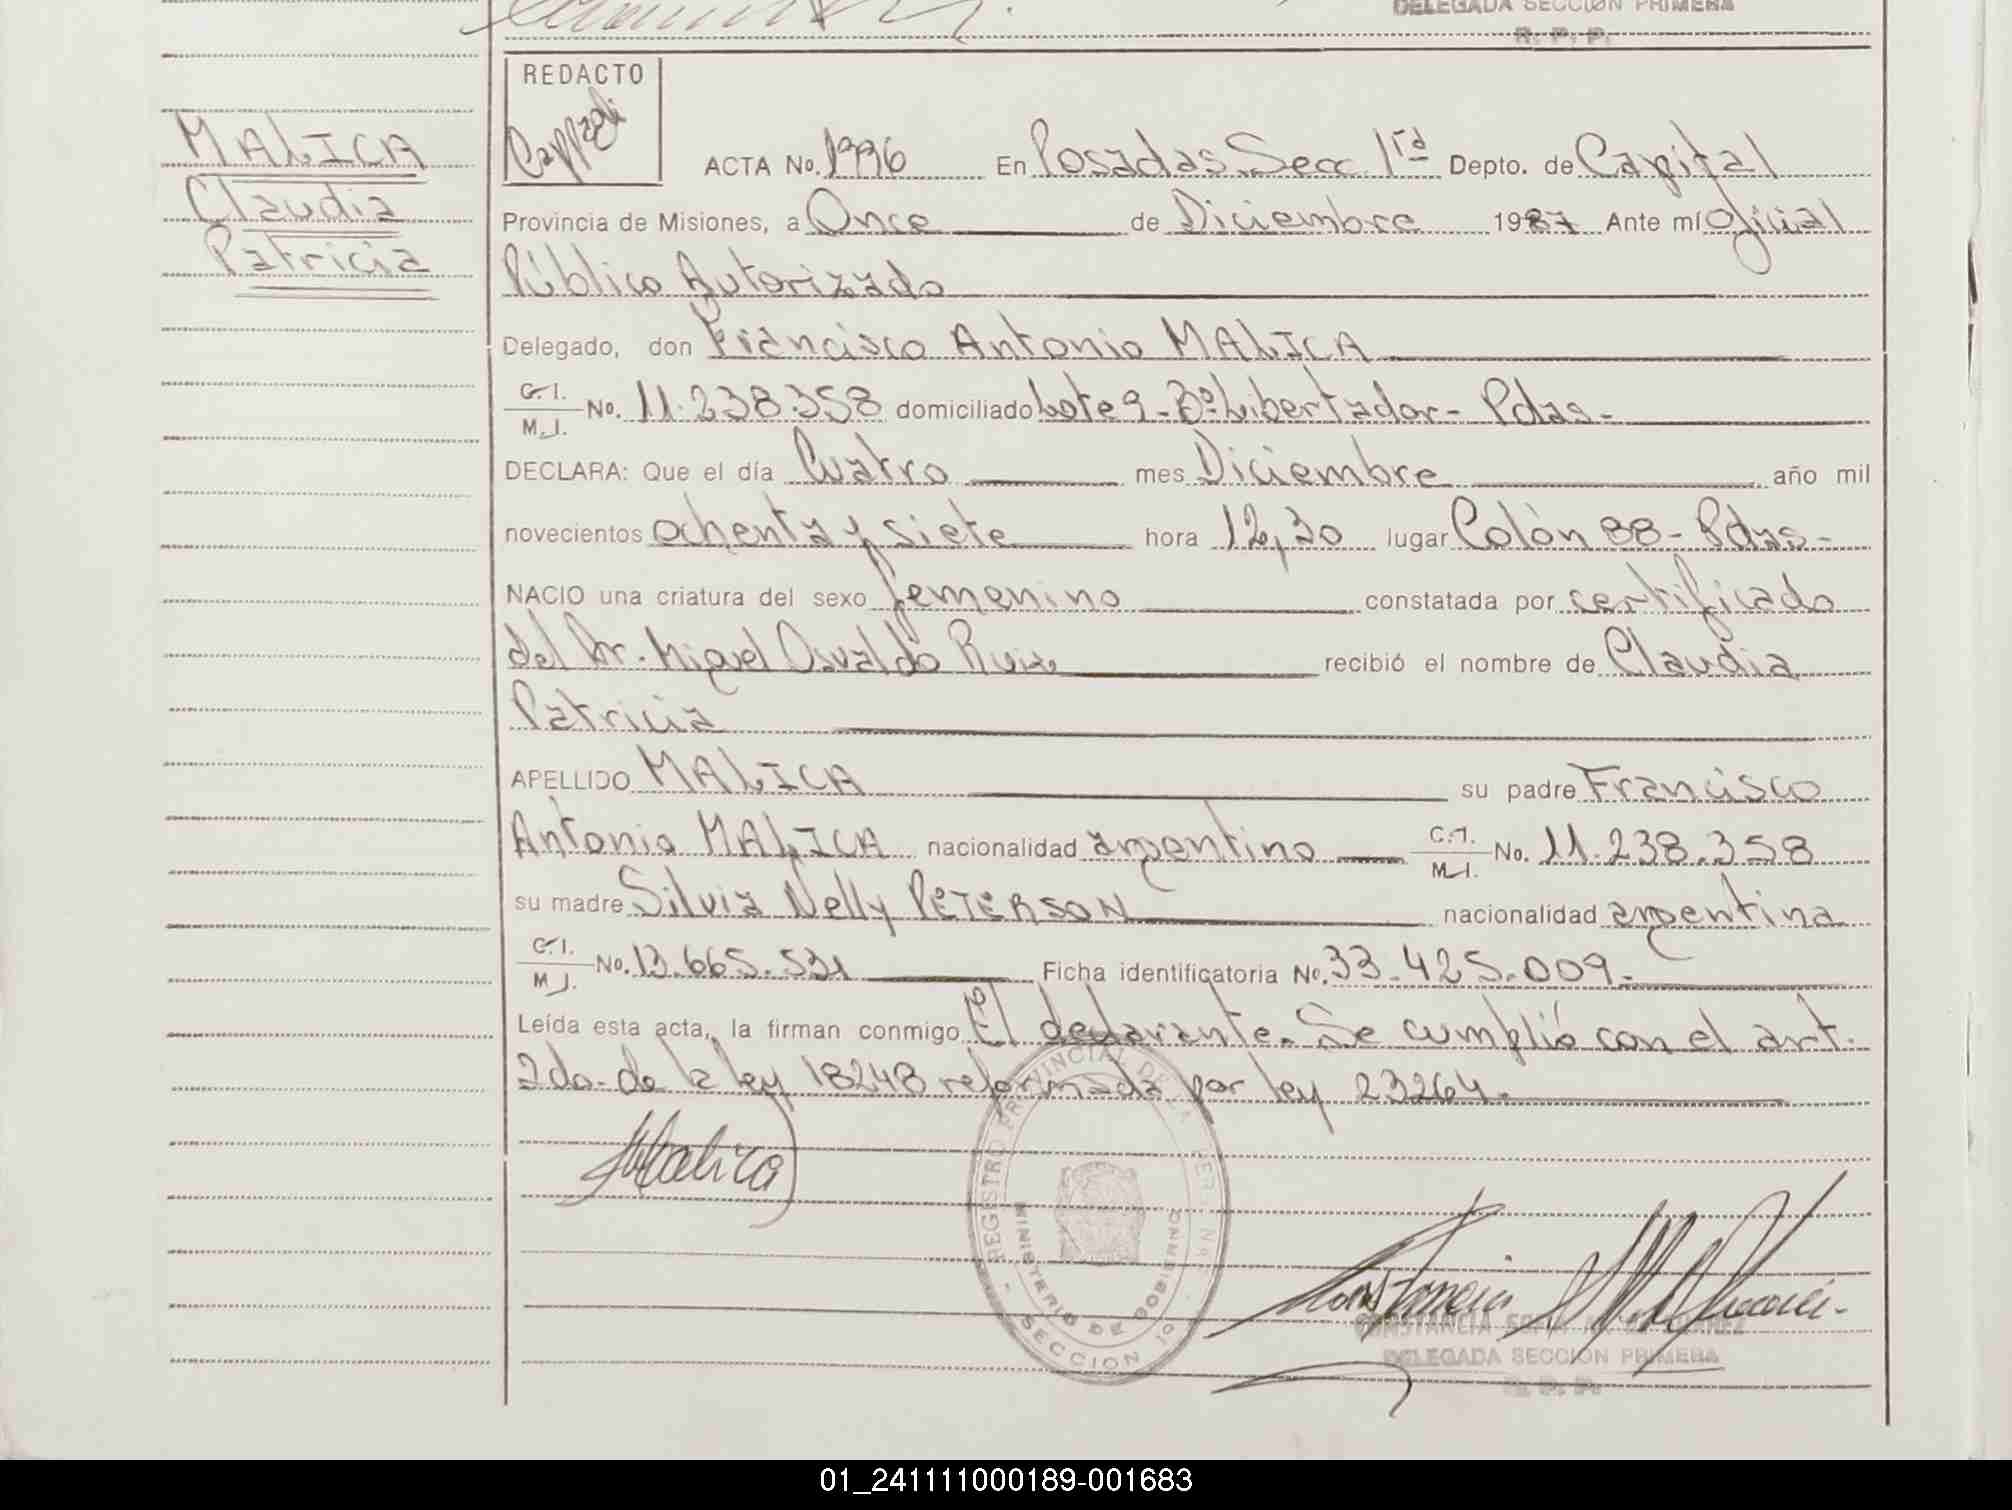 DELEGADA SECCIÓN PRIMERA
R. P. P.
REDACTO
MALICA
Claudia
Patricia
ACTA No. 1996 En Posadas Secc. 1ra Depto. de Capital
Provincia de Misiones, a Once de Diciembre 1987 Ante mí Oficial
Público Autorizado
Delegado, don Francisco Antonio MALICA
C.I. M.I. No. 11.238.358 domiciliado Lote 9 - Bº Libertador - Pdas -
DECLARA: Que el día Cuatro mes Diciembre año mil
novecientos ochenta y siete hora 12,30 lugar Colón 88 - Pdas -
NACIO una criatura del sexo femenino constatada por certificado
del Dr. Miguel Osvaldo Ruiz recibió el nombre de Claudia
Patricia
APELLIDO MALICA su padre Francisco
Antonio MALICA nacionalidad argentino C.I. M.I. No. 11.238.358
su madre Silvia Nelly PETERSON nacionalidad argentina
C.I. M.I. No. 13.665.531 Ficha identificatoria No. 33.425.009.
Leída esta acta, la firman conmigo El declarante. Se cumplió con el art.
2do. de la ley 18248 reformada por ley 23264.
Malica
REGISTRO PROVINCIAL DE LAS PERSONAS
MINISTERIO DE GOBIERNO
SECCION 1º
CONSTANCIA
DELEGADA SECCIÓN PRIMERA
R. P. P.
01_241111000189-001683